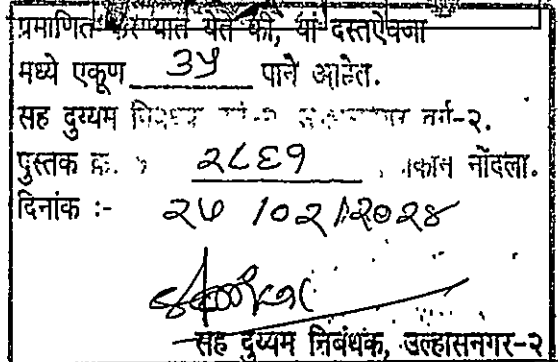 प्रमाणित करण्यात येते की, या दस्तऐवजा
मध्ये एकूण ३५ पाने आहेत.
सह दुय्यम वर्ग-२.
पुस्तक क्र. २८६१ नोंदला.
दिनांक :- २७ /०२/२०२४
सह दुय्यम निबंधक, उल्हासनगर-२